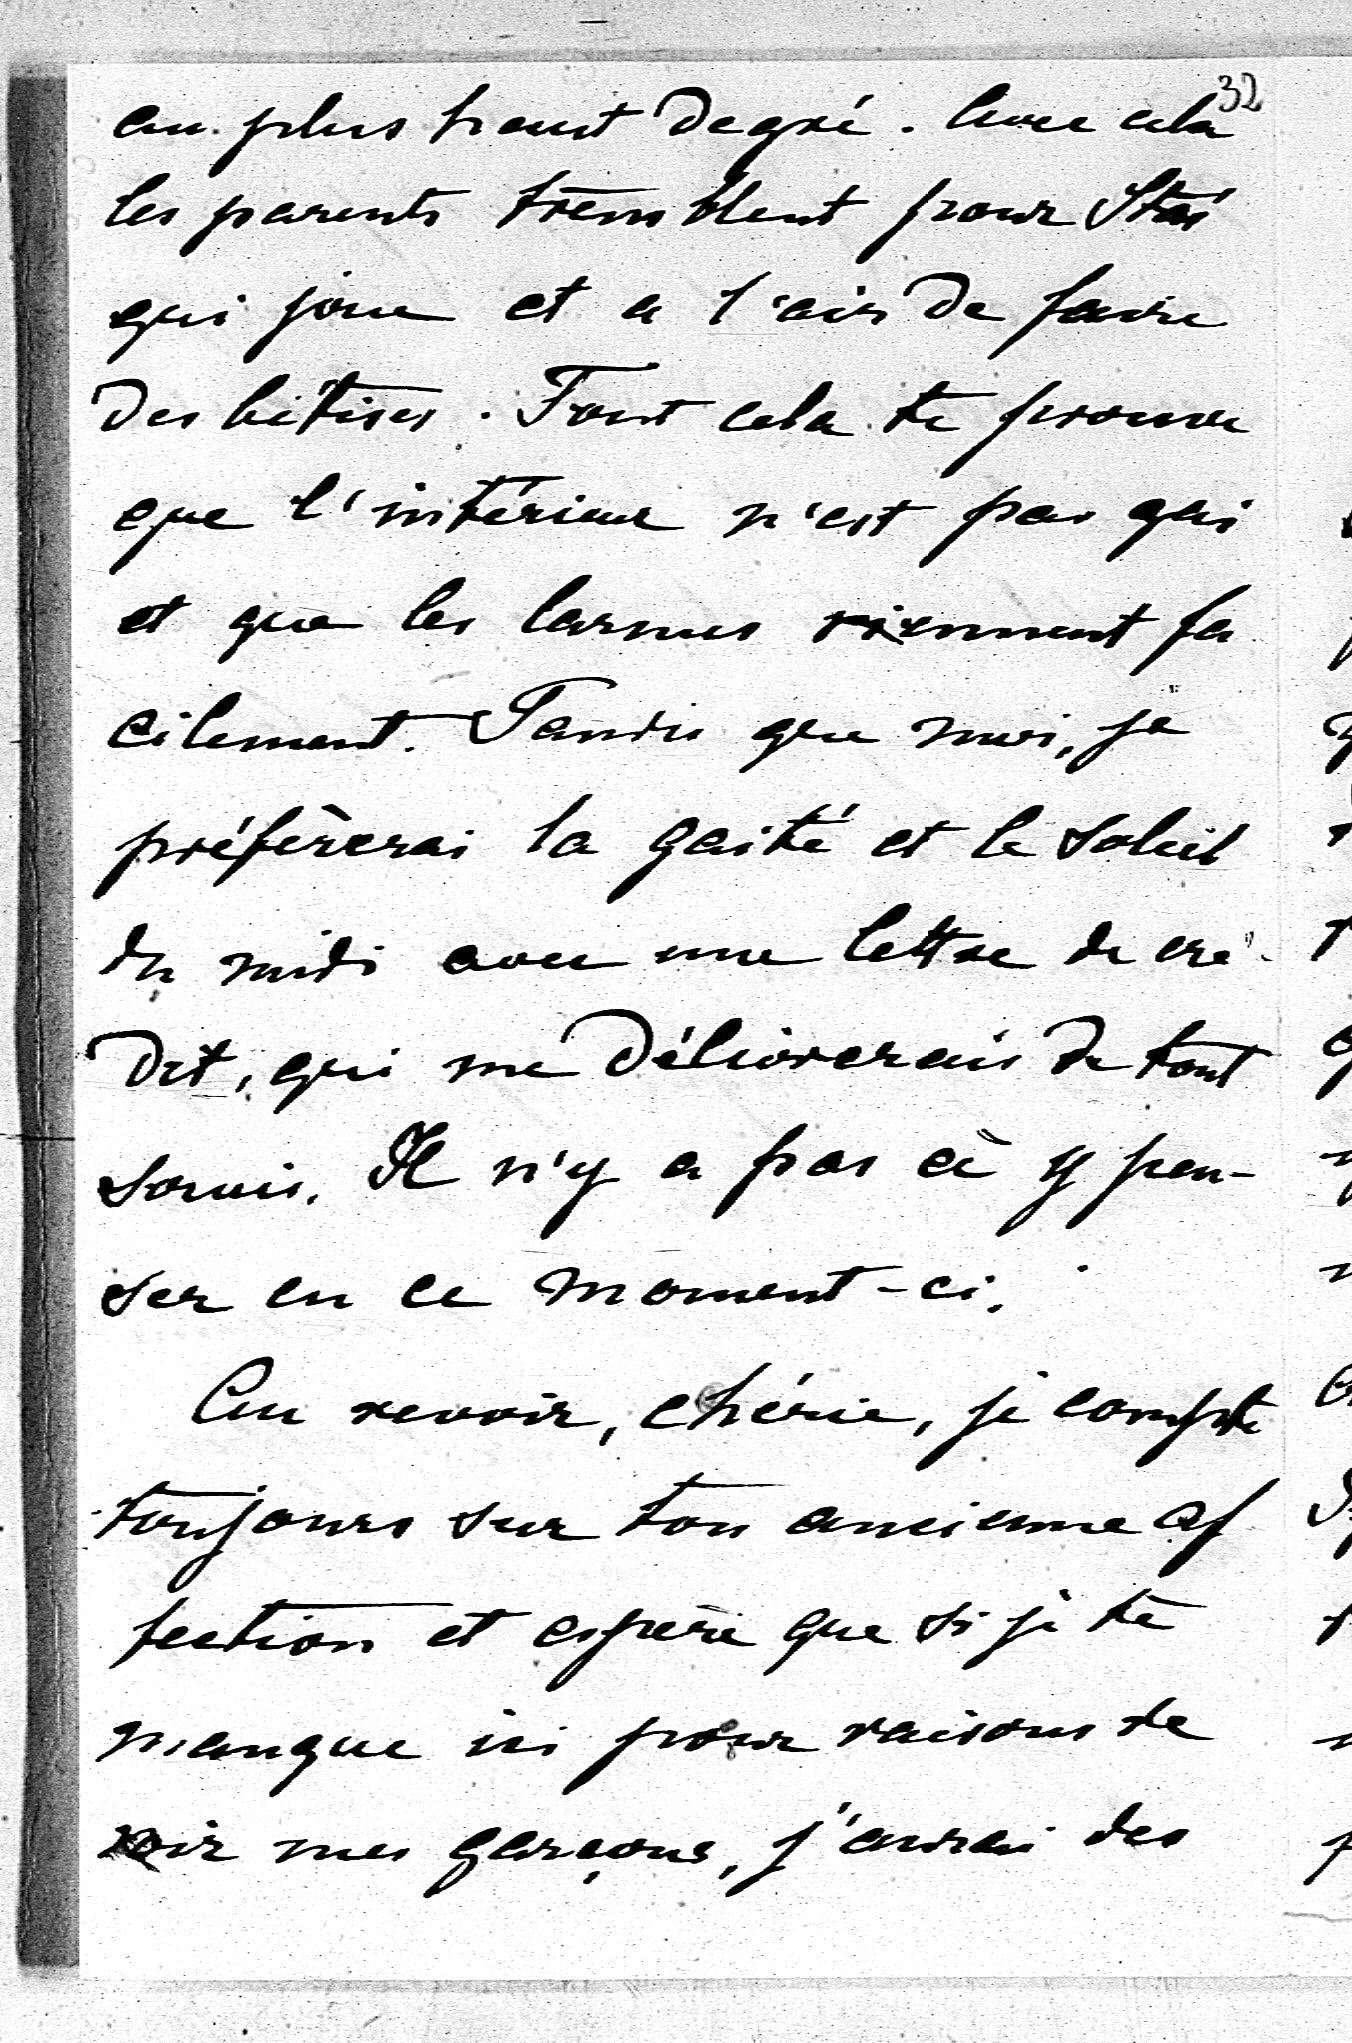 32
au plus haut degré. Avec cela
les parents tremblent pour Stas
qui joue et a l'air de faire
des bêtises. Tout cela te prouve
que l'intérieur n'est pas gai
et que les larmes viennent fa
cilement. Tandis que moi, je
préfèrerai la gaité et le soleil
du midi avec une lettre de cré-
dit, qui me délivrerais de tout
soucis. Il n'y a pas à y pen-
ser en ce moment-ci.
Au revoir, chérie, je compte
toujours sur ton ancienne af
fection et espère que si je te
manque ici pour raisons de
voir mes garçons, j'aurai des